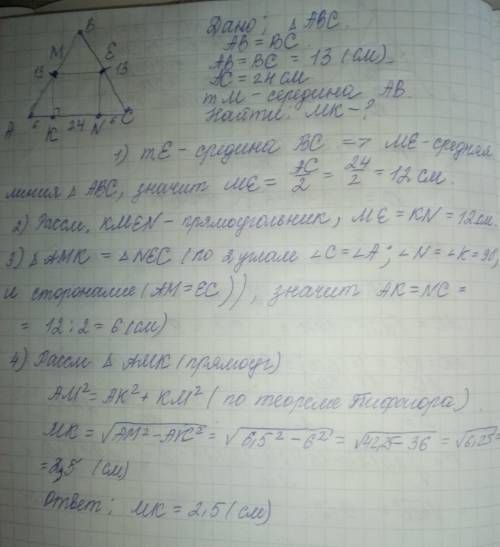 Дано; △ ABC.
AB = BC
AB = BC = 13 (см).
AC = 24 см
т M - середина AB.
Найти: MK - ?
B
M E
13 13
A 6 K 24 N 6 C
1) т E - средина BC => ME - средняя
линия △ ABC, значит ME = AC/2 = 24/2 = 12 см.
2) Рассм, KMEN - прямоугольник, ME = KN = 12 см.
3) △ AMK = △ NEC (по 2 углам ∠C = ∠A; ∠N = ∠K = 90,
и сторонаме (AM = EC)), значит AK = NC =
= 12 : 2 = 6 (см)
4) Рассм △ AMK (прямоуг)
AM² = AK² + KM² (по теореме Пифагора)
MK = √AM² - AK² = √6,5² - 6² = √42,25 - 36 = √6,25 =
= 2,5 (см)
Ответ; MK = 2,5 (см)